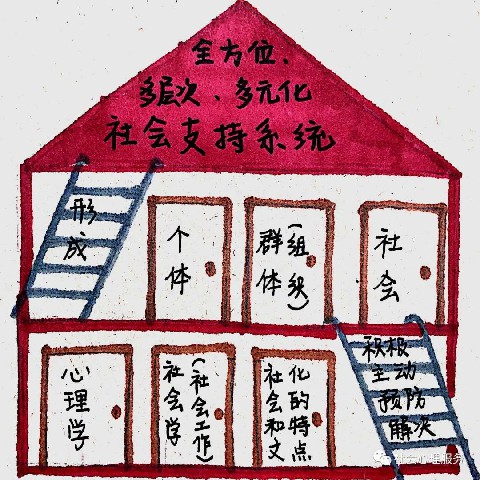 全方位、
多层次、多元化
社会支持系统
形成
个体
群体
(组织)
社会
心理学
社会学
(社会工作)
社会和文
化的特点
积极
主动
预防
解决
心理服务